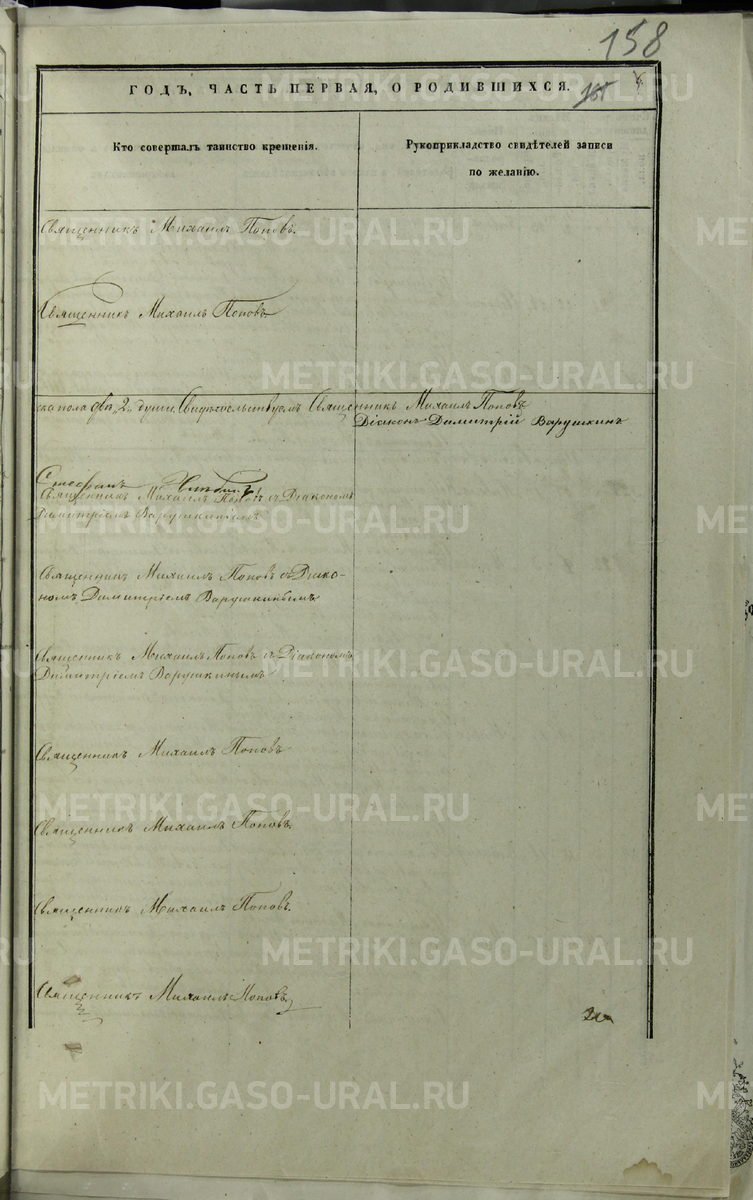 158
ГОДЪ, ЧАСТЬ ПЕРВАЯ, О РОДИВШИХСЯ.
Кто совершалъ таинство крещенія.
Рукоприкладство свидѣтелей записи
по желанію.
Священникъ Михаилъ Поповъ.
Священникъ Михаилъ Поповъ
ска пола двѣ „2„ души. Свидѣтельствуемъ Священникъ Михаилъ Поповъ
Діаконъ Димитрій Варушкинъ
Священникъ Михаилъ Поповъ съ Діакономъ
Димитріемъ
Священникъ Михаилъ Поповъ съ Діако-
номъ Димитріемъ Варушкинымъ
Священникъ Михаилъ Поповъ съ Діакономъ
Димитріемъ Варушкинымъ
Священникъ Михаилъ Поповъ
Священникъ Михаилъ Поповъ.
Священникъ Михаилъ Поповъ.
Священникъ Михаилъ Поповъ
METRIKI.GASO-URAL.RU